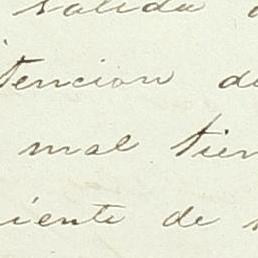 salida
tencion de
mal tien
iente de